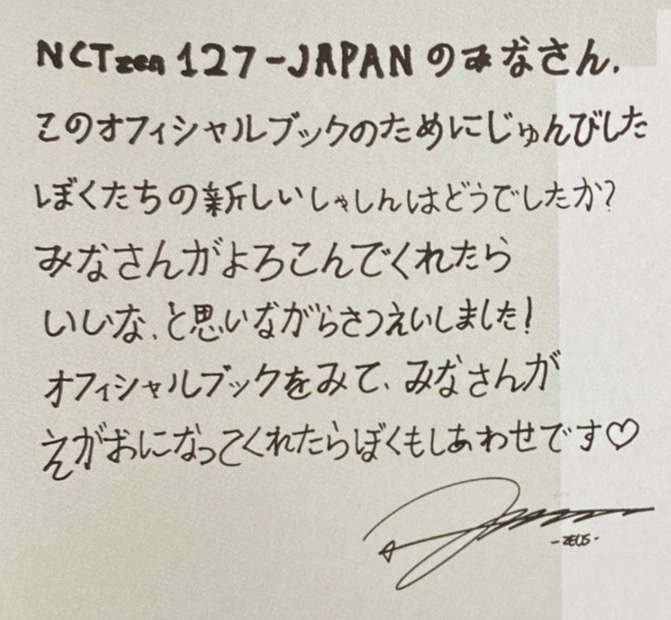 NCTzen 127-JAPANのみなさん.
このオフィシャルブックのためにじゅんびした
ぼくたちの新しいしゃしんはどうでしたか?
みなさんがよろこんでくれたら
いいな、と思いながらさつえいしました!
オフィシャルブックをみて、みなさんが
えがおになってくれたらぼくもしあわせです♡
-ZEUS-